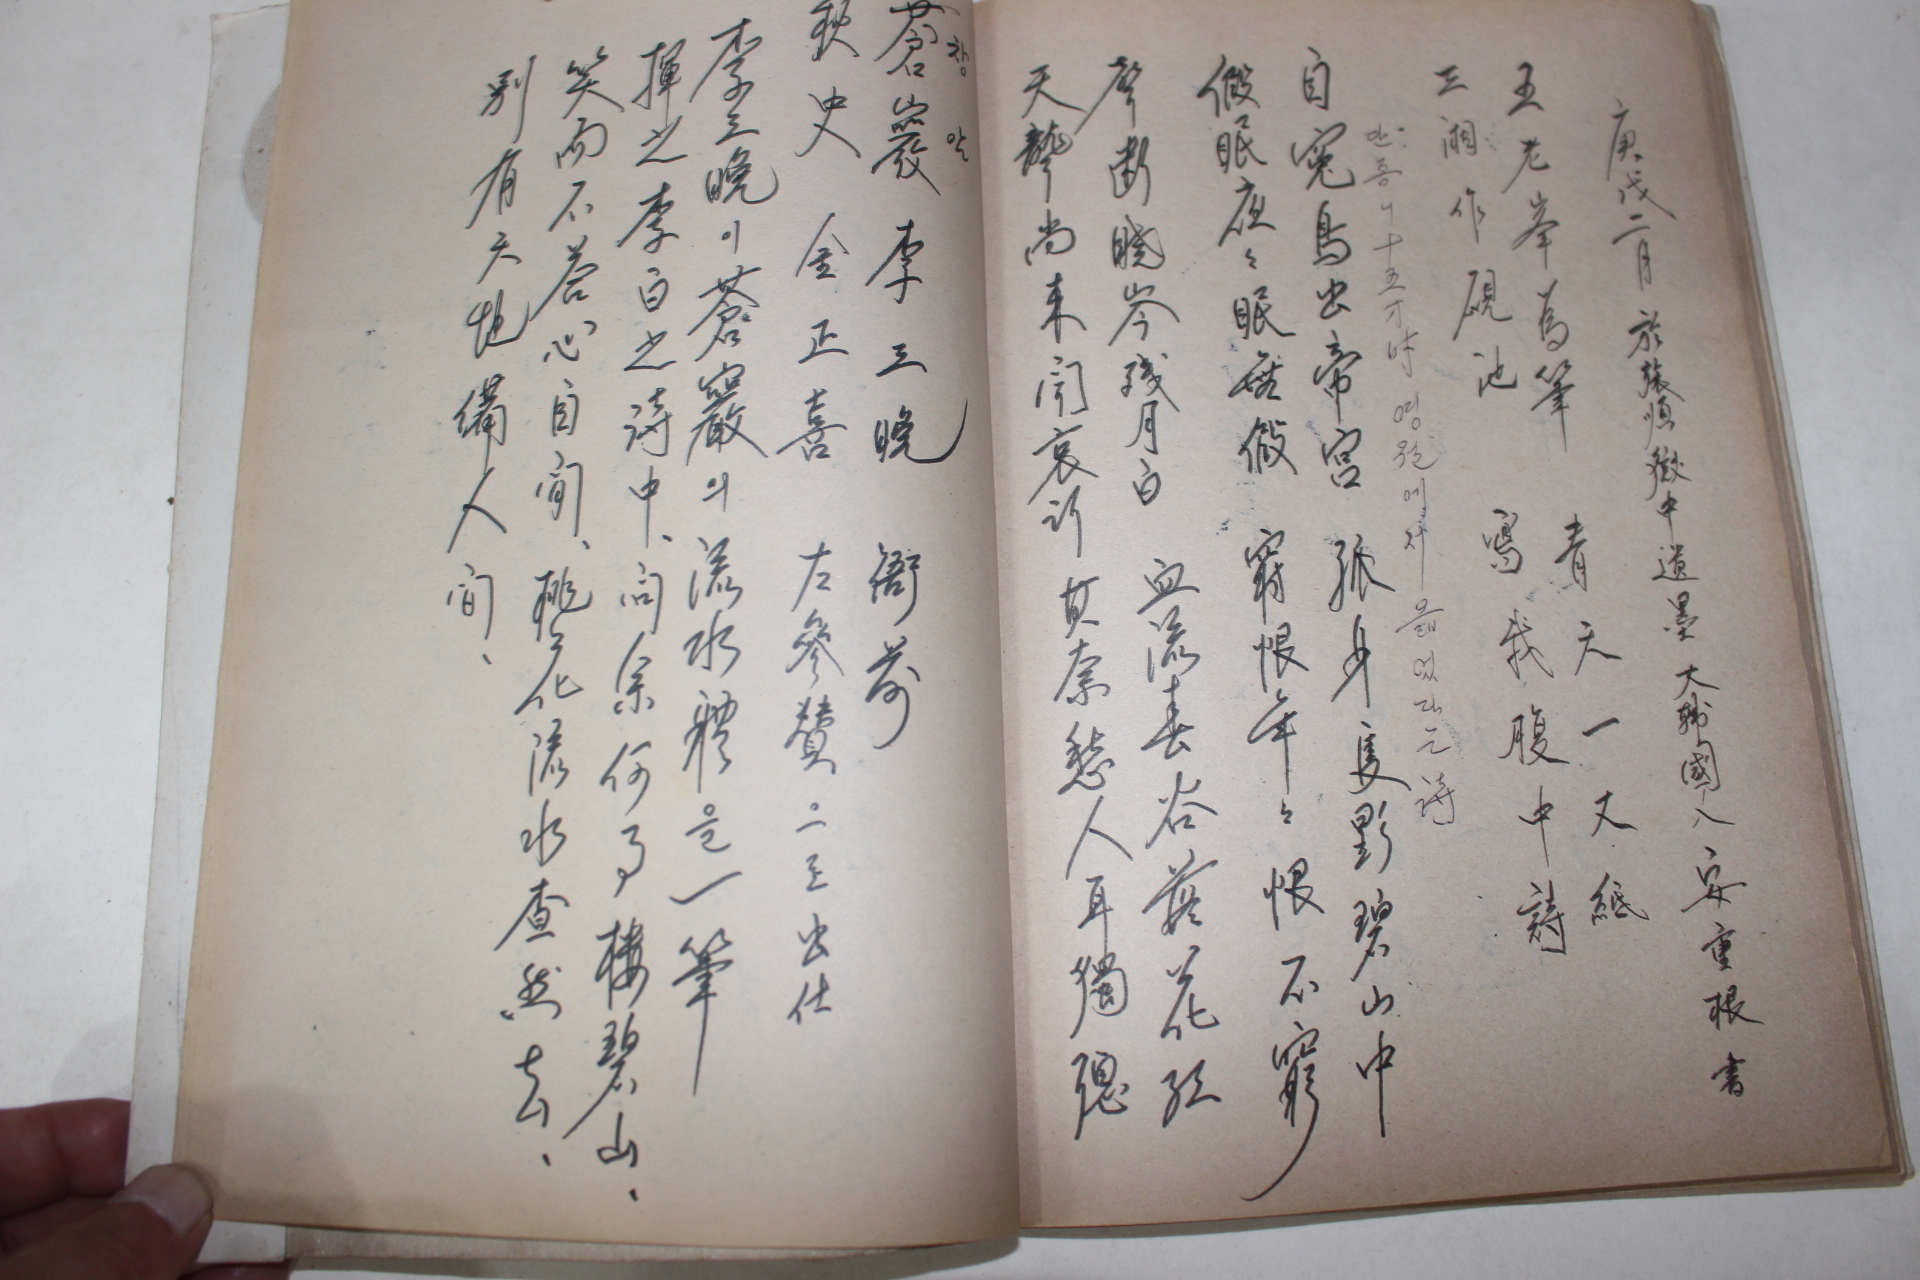 庚戌二月 於旅順獄中 道墨 大韓國人 安重根 書
五老峯爲筆 青天一丈紙
三湘作硯池 寫我腹中詩
단종이 十五才時 영월에서 읊었다는 詩
自寃鳥出帝宮 孤身隻影碧山中
假眠夜々眠無假 窮恨年々恨不窮
聲斷曉岑残月白 血流春谷落花紅
天聾尚未聞哀訴 其奈愁人耳獨聰
창암
蒼巖 李三晩 衙前
秋史 金正喜 左參贊으로 出仕
李三晩이 蒼巖의 流水體을 一筆
揮之 李白之詩中、問余何事棲碧山、
笑而不答心自閒、桃花流水杳然去、
別有天地備人間、